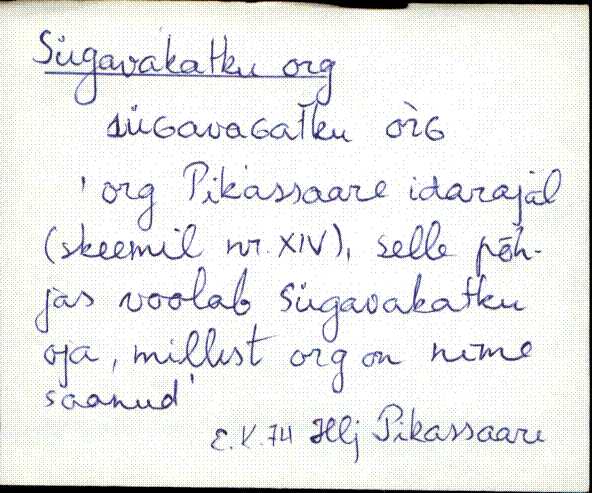 Sügavakatku org
süGavaGatku òrG
'org Pikassaare idarajal
(skeemil nr. XIV), selle põh-
jas voolab Sügavakatku
oja, millest org on nime
saanud'
E.K. 74 Hlj Pikassaare